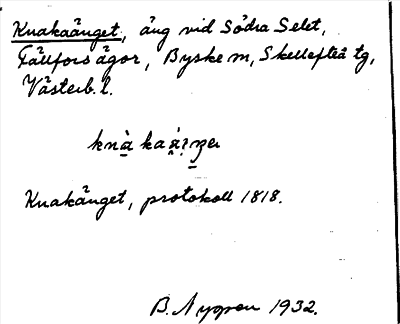 Knakaänget, äng vid Södra Selet,
Fällforsågor, Byske m, Skellefteå tg,
Västerb. l.
Knakänget, protokoll 1818.
B. Nygren 1932.